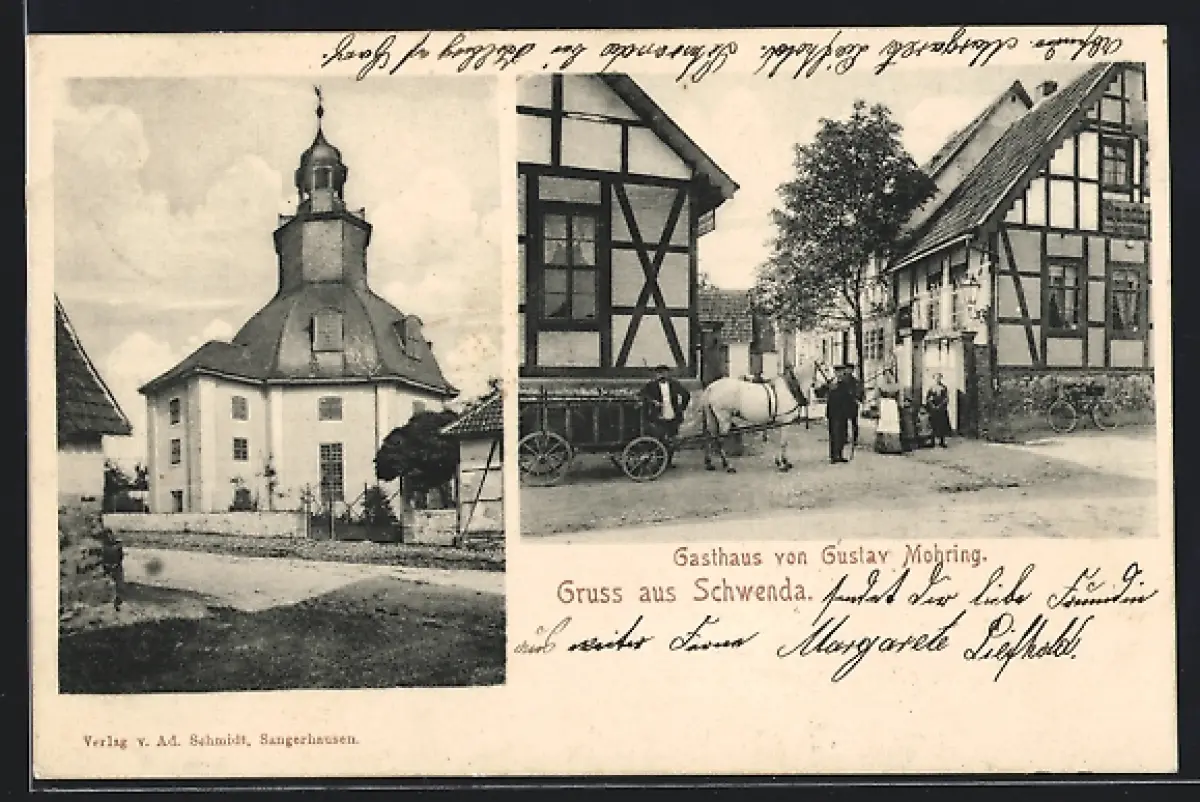 Absender Margarete Liefhold. Schwenda bei Stolberg a/ Harz.
Gasthaus von Gustav Mohring.
Gruss aus Schwenda. sendet Dir liebe Freundin
aus weiter Ferne Margarete Liefhold.
Verlag v. Ad. Schmidt, Sangerhausen.